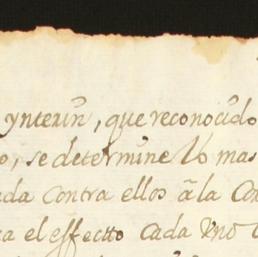 ynterin, que reconocido
o, se determine lo mas
ada contra ellos â la Con
a el effectto cada vno